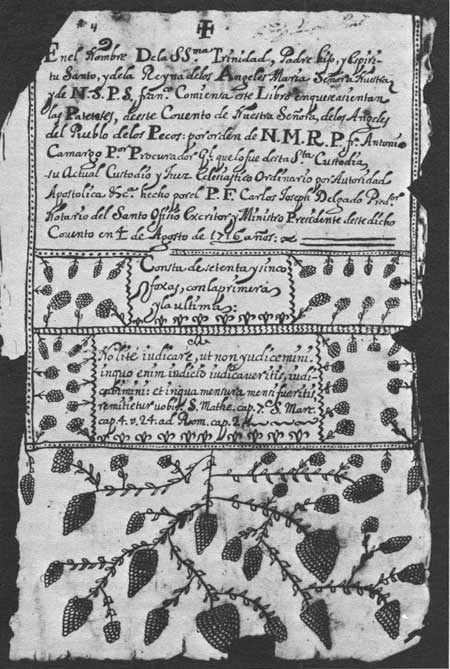 En el Nombre De la SS.ma Trinidad, Padre hijo, y Espiri-
tu Santo, y de la Reyna delos Angeles Maria Señora Nuestra
y de N.S.P.S. fran.co Comiensa este Libro enquese asientan
las Patentes, deeste Covento de Nuestra Señora, delos Angeles
del Pueblo delos Pecos: por orden de N.M.R.P. fr. Antonio
Camargo P.or Procurador G.l que lo fue desta S.ta Custodia
su Actual Custodio y Juez Eclesiastico Ordinario por Autoridad
Apostolica &c.a hecho por el P. F. Carlos Joseph Delgado Pred.or
Notario del Santo Ofisio Escritor y Ministro Presidente deste dicho
Covento en 4 de Agosto de 1716 años:
Consta de setenta y sinco
foxas, con la primera
y la ultima:
Nolite iudicare, ut non yudicemini.
inquo enim iudicio iudicaveritis, iudi-
cabimini: et inqua mensura mensi fueritis
remitietur vobis. S. Mathe. cap. 7.º S. Marc.
cap. 4. v. 24. ad Rom. cap. 2.